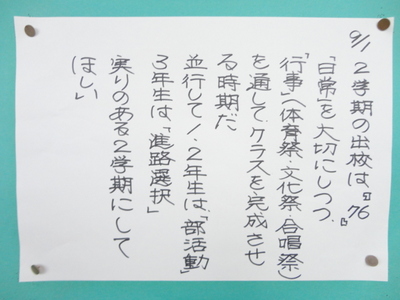 9/1 2学期の出校は、76日
「日常」を大切にしつつ、
「行事」(体育祭・文化祭・合唱祭)
を通して、クラスを完成させ
る時期だ
並行して1・2年生は、「部活動」
3年生は、「進路選択」
実りのある2学期にして
ほしい